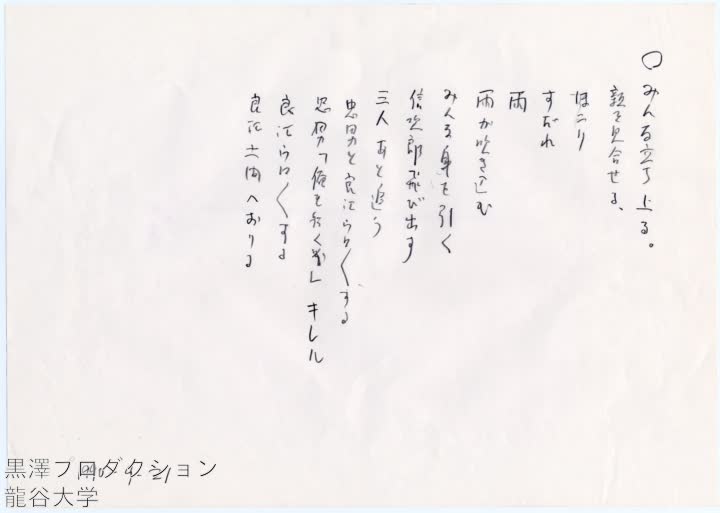 〇みんな立ち上る。
顔を見合せる、
ほこり
すだれ
雨
雨が吹き込む
みんな身を引く
信次郎飛び出す
三人あと追う
忠男と良江うろ〳〵する
忠男「俺も行くぞ」キレル
良江うろ〳〵する
良江土間へおりる
黒澤プロダクション
龍谷大学